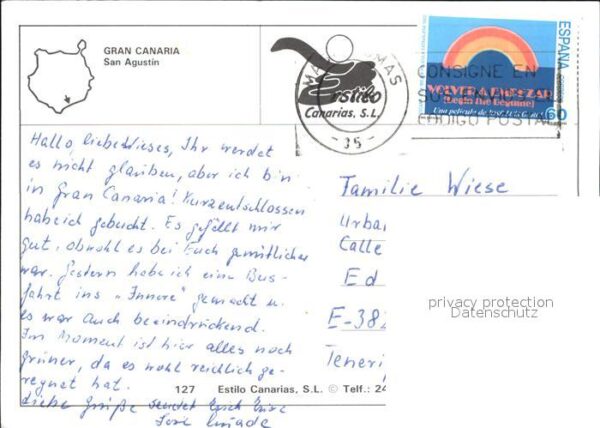 GRAN CANARIA
San Agustín
MASPALOMAS
Estilo
Canarias, S.L.
- 35 -
CONSIGNE EN
SU
CODIGO POSTAL
ESPAÑA
VOLVER A EMPEZAR
(Begin the Beguine)
Una película de José Luis Garci
60
Hallo liebe Wieses, Ihr werdet
es nicht glauben, aber ich bin
in Gran Canaria! Kurzentschlossen
habe ich gebucht. Es gefällt mir
gut, obwohl es bei Euch gemütlicher
war. Gestern habe ich eine Bus-
fahrt ins „Innere" gemacht u.
es war auch beeindruckend.
Im Moment ist hier alles noch
grüner, da es wohl reichlich ge-
regnet hat.
Liebe Grüße sendet Euch Eure
Familie Wiese
Urba
Calle
Ed
E-38
Teneri
privacy protection
Datenschutz
127 Estilo Canarias, S.L. © Telf.: 24